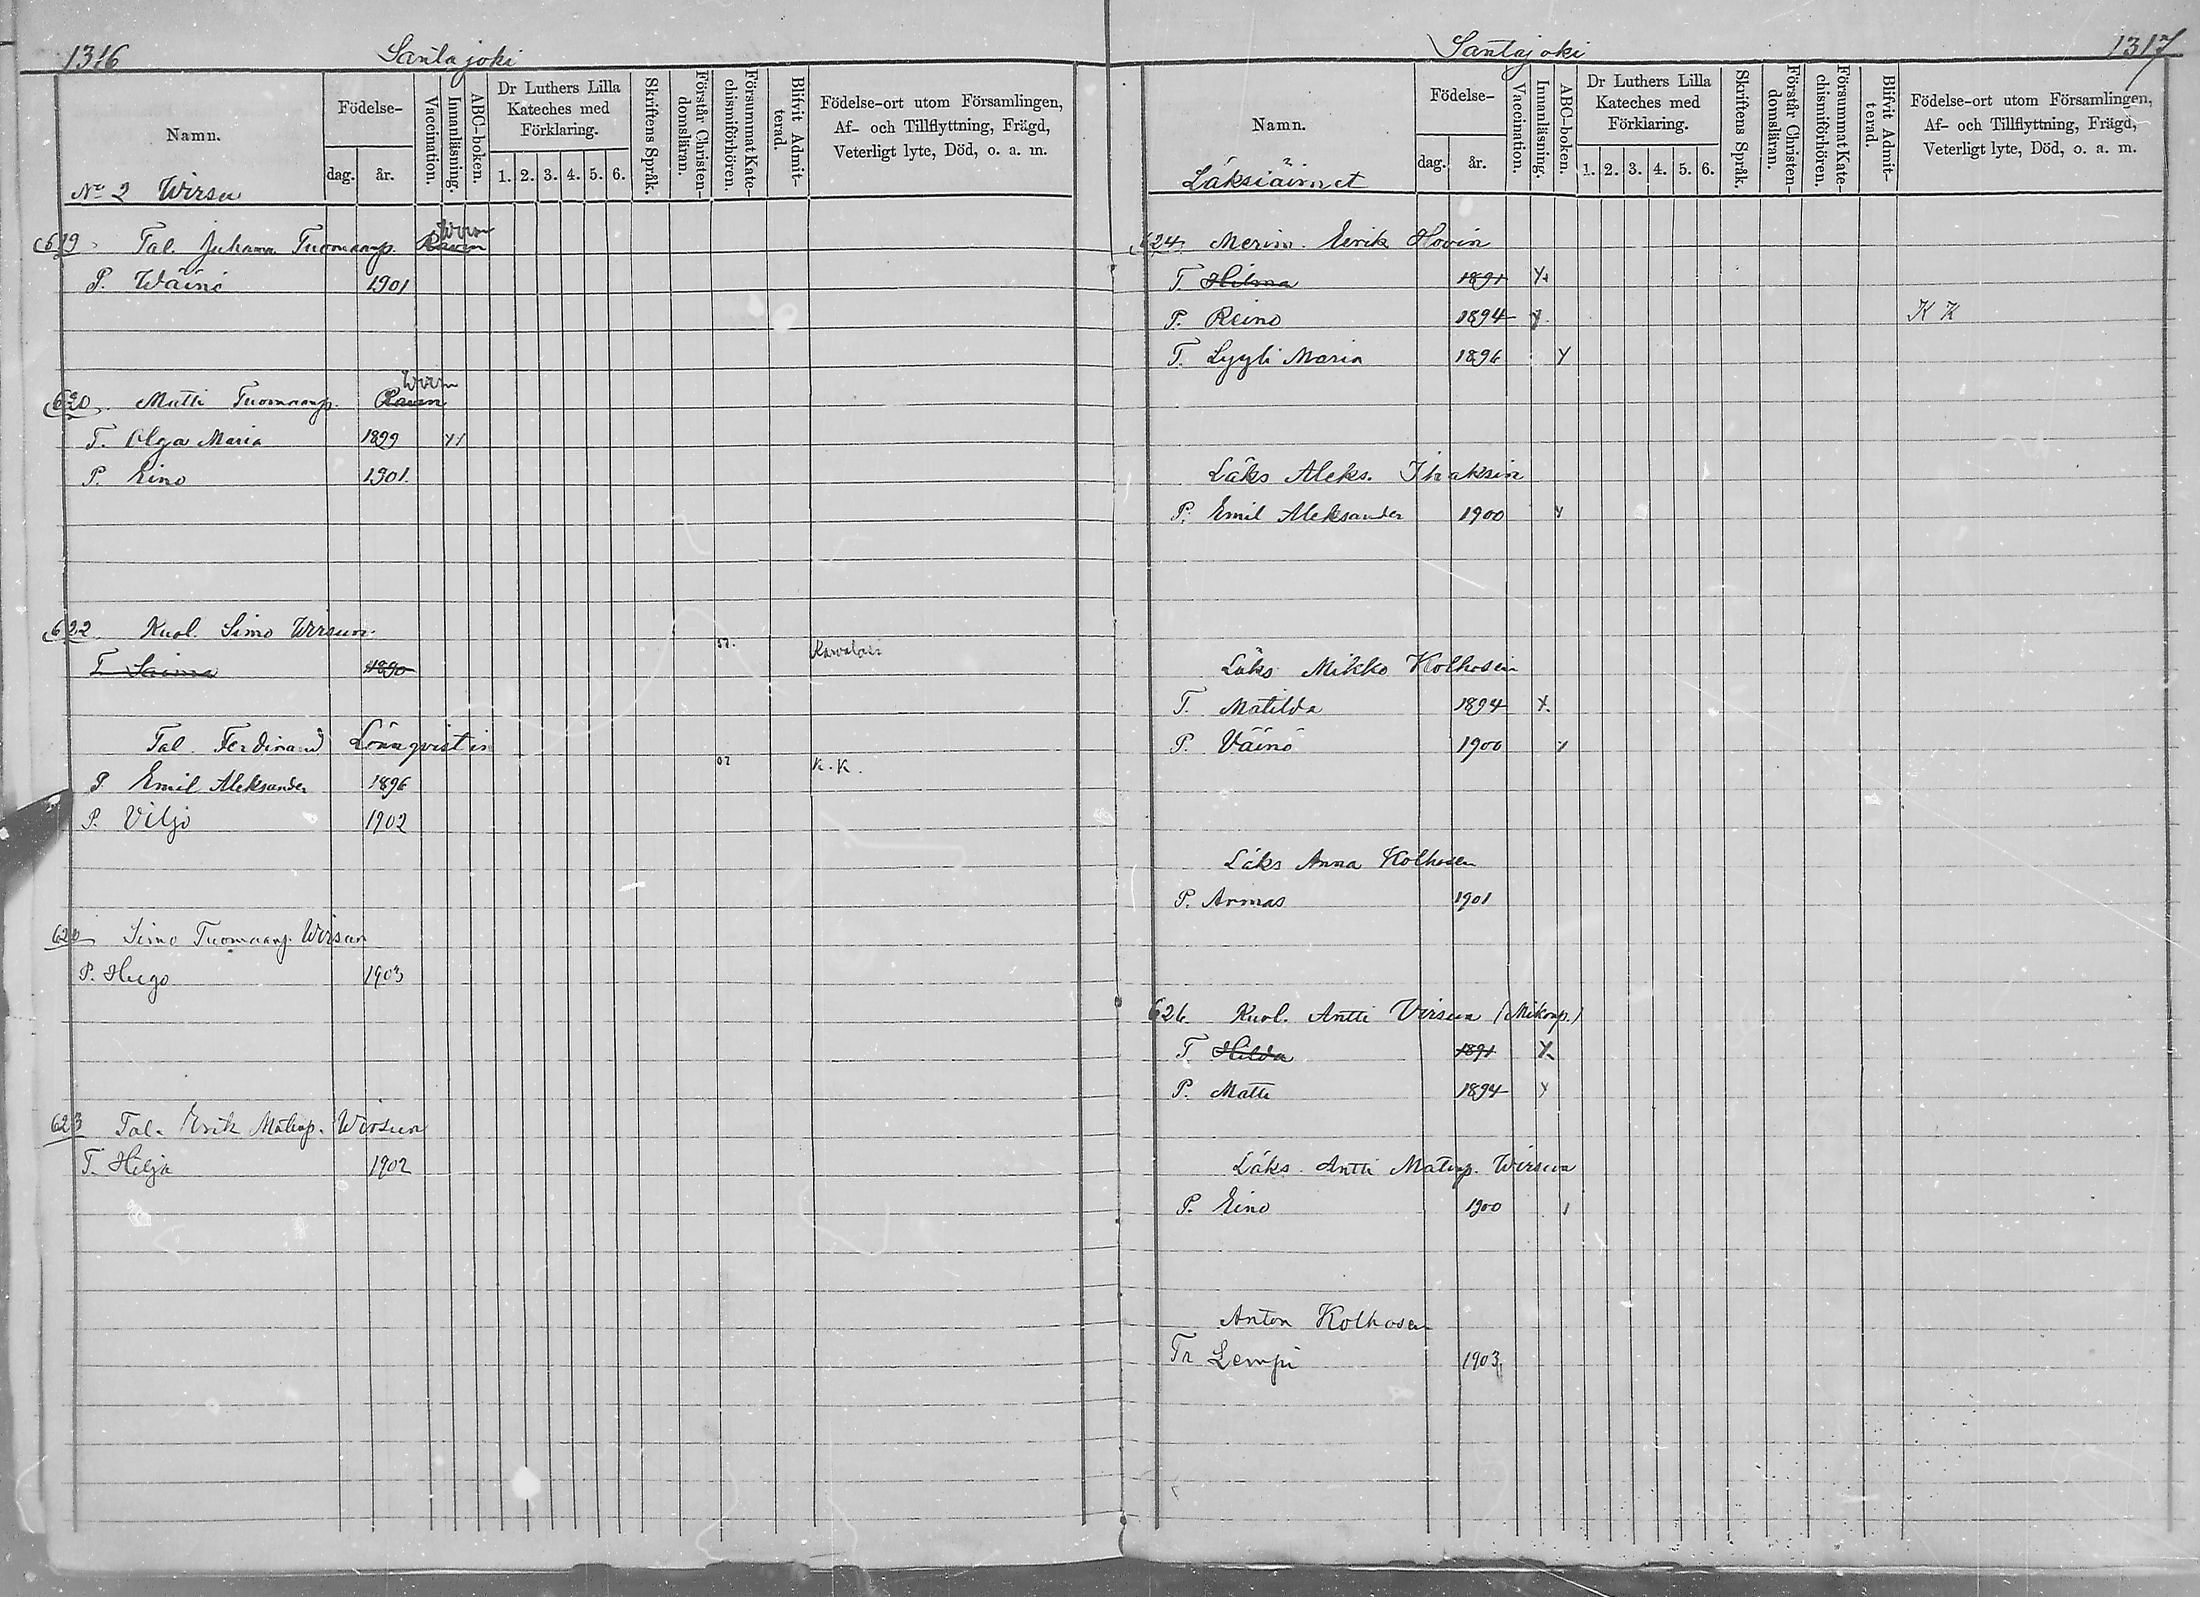 1316 Santajoki
Namn.
Födelse-
dag. år.
Vaccination.
Innanläsning.
ABC-boken.
Dr Luthers Lilla Kateches med Förklaring.
1. 2. 3. 4. 5. 6.
Skriftens Språk.
Förstår Christendomsläran.
Försummat Katechismiförhören.
Blifvit Admitterad.
Födelse-ort utom Församlingen,
Af- och Tillflyttning, Frägd,
Veterligt lyte, Död, o. a. m.
No 2 Wirsu
619 Tal. Juhana Tuomaanp. Wirsu
P. Wäinö 1901
620. Matti Tuomaanp. Wirsu
T. Olga Maria 1899
P. Eino 1901.
622 Kuol. Simo Wirsun.
T Saima 1890
Tal. Ferdinand Lönnqvistin
P Emil Aleksander 1896 02 K.K.
P. Viljo 1902
620 Simo Tuomaanp. Wirsun
P. Hugo 1903
623 Tal. Erik Matinp. Wirsun
T. Hilja 1902
Santajoki 1317
Namn.
Födelse-
dag. år.
Vaccination.
Innanläsning.
ABC-boken.
Dr Luthers Lilla Kateches med Förklaring.
1. 2. 3. 4. 5. 6.
Skriftens Språk.
Förstår Christendomsläran.
Försummat Katechismiförhören.
Blifvit Admitterad.
Födelse-ort utom Församlingen,
Af- och Tillflyttning, Frägd,
Veterligt lyte, Död, o. a. m.
Läksiäimet
624. Merim. Eerik Hovin
T. Hilma 1891 x
P. Reino 1894 x K K
T. Lyyli Maria 1896 x
Läks Aleks. Ihaksin
P. Emil Aleksander 1900 x
Läks Mikko Kolhosen
T. Matilda 1894 x
P. Väinö 1900
Läks Anna Kolhosen
P. Armas 1901
626. Kuol. Antti Virsun (Mikonp.)
T. Hilda 1891 x
P. Matti 1894 x
Läks. Antti Matinp. Wirsun
P. Eino 1900
Anton Kolhosen
Tr Lempi 1903